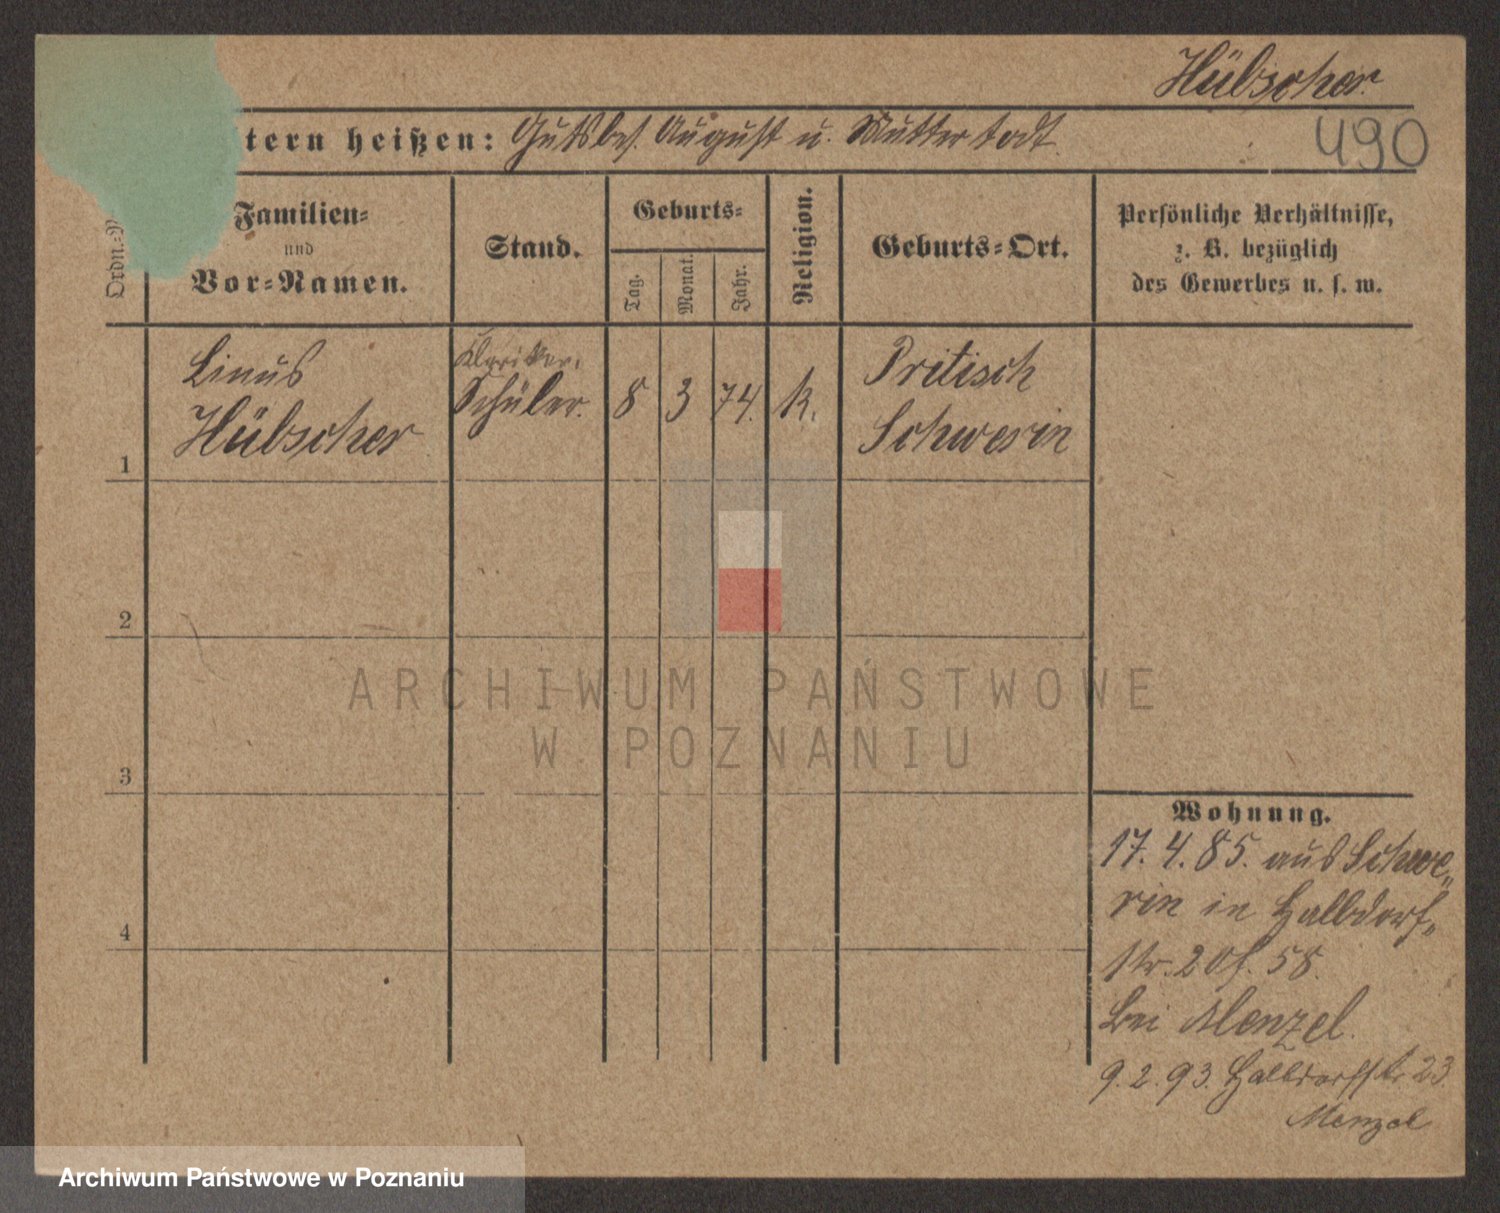 Hübscher.
tern heißen: Gutsbes. August u. Mutter todt.
490
Ordn.=N
Familien=
und
Vor=Namen.
Stand.
Geburts=
Tag.
Monat.
Jahr.
Religion.
Geburts=Ort.
Persönliche Verhältnisse,
z. B. bezüglich
des Gewerbes u. s. w.
Linus
Hübscher
Schüler.
8 3 74. k.
Pritisch
Schwerin
1
2
3
4
ARCHIWUM PAŃSTWOWE
W POZNANIU
Wohnung.
17. 4. 85. aus Schwe„
rin in Halbdorf„
str. 20 58.
bei Menzel.
9. 2. 93. Halbdorfstr 23
Menzel
Archiwum Państwowe w Poznaniu